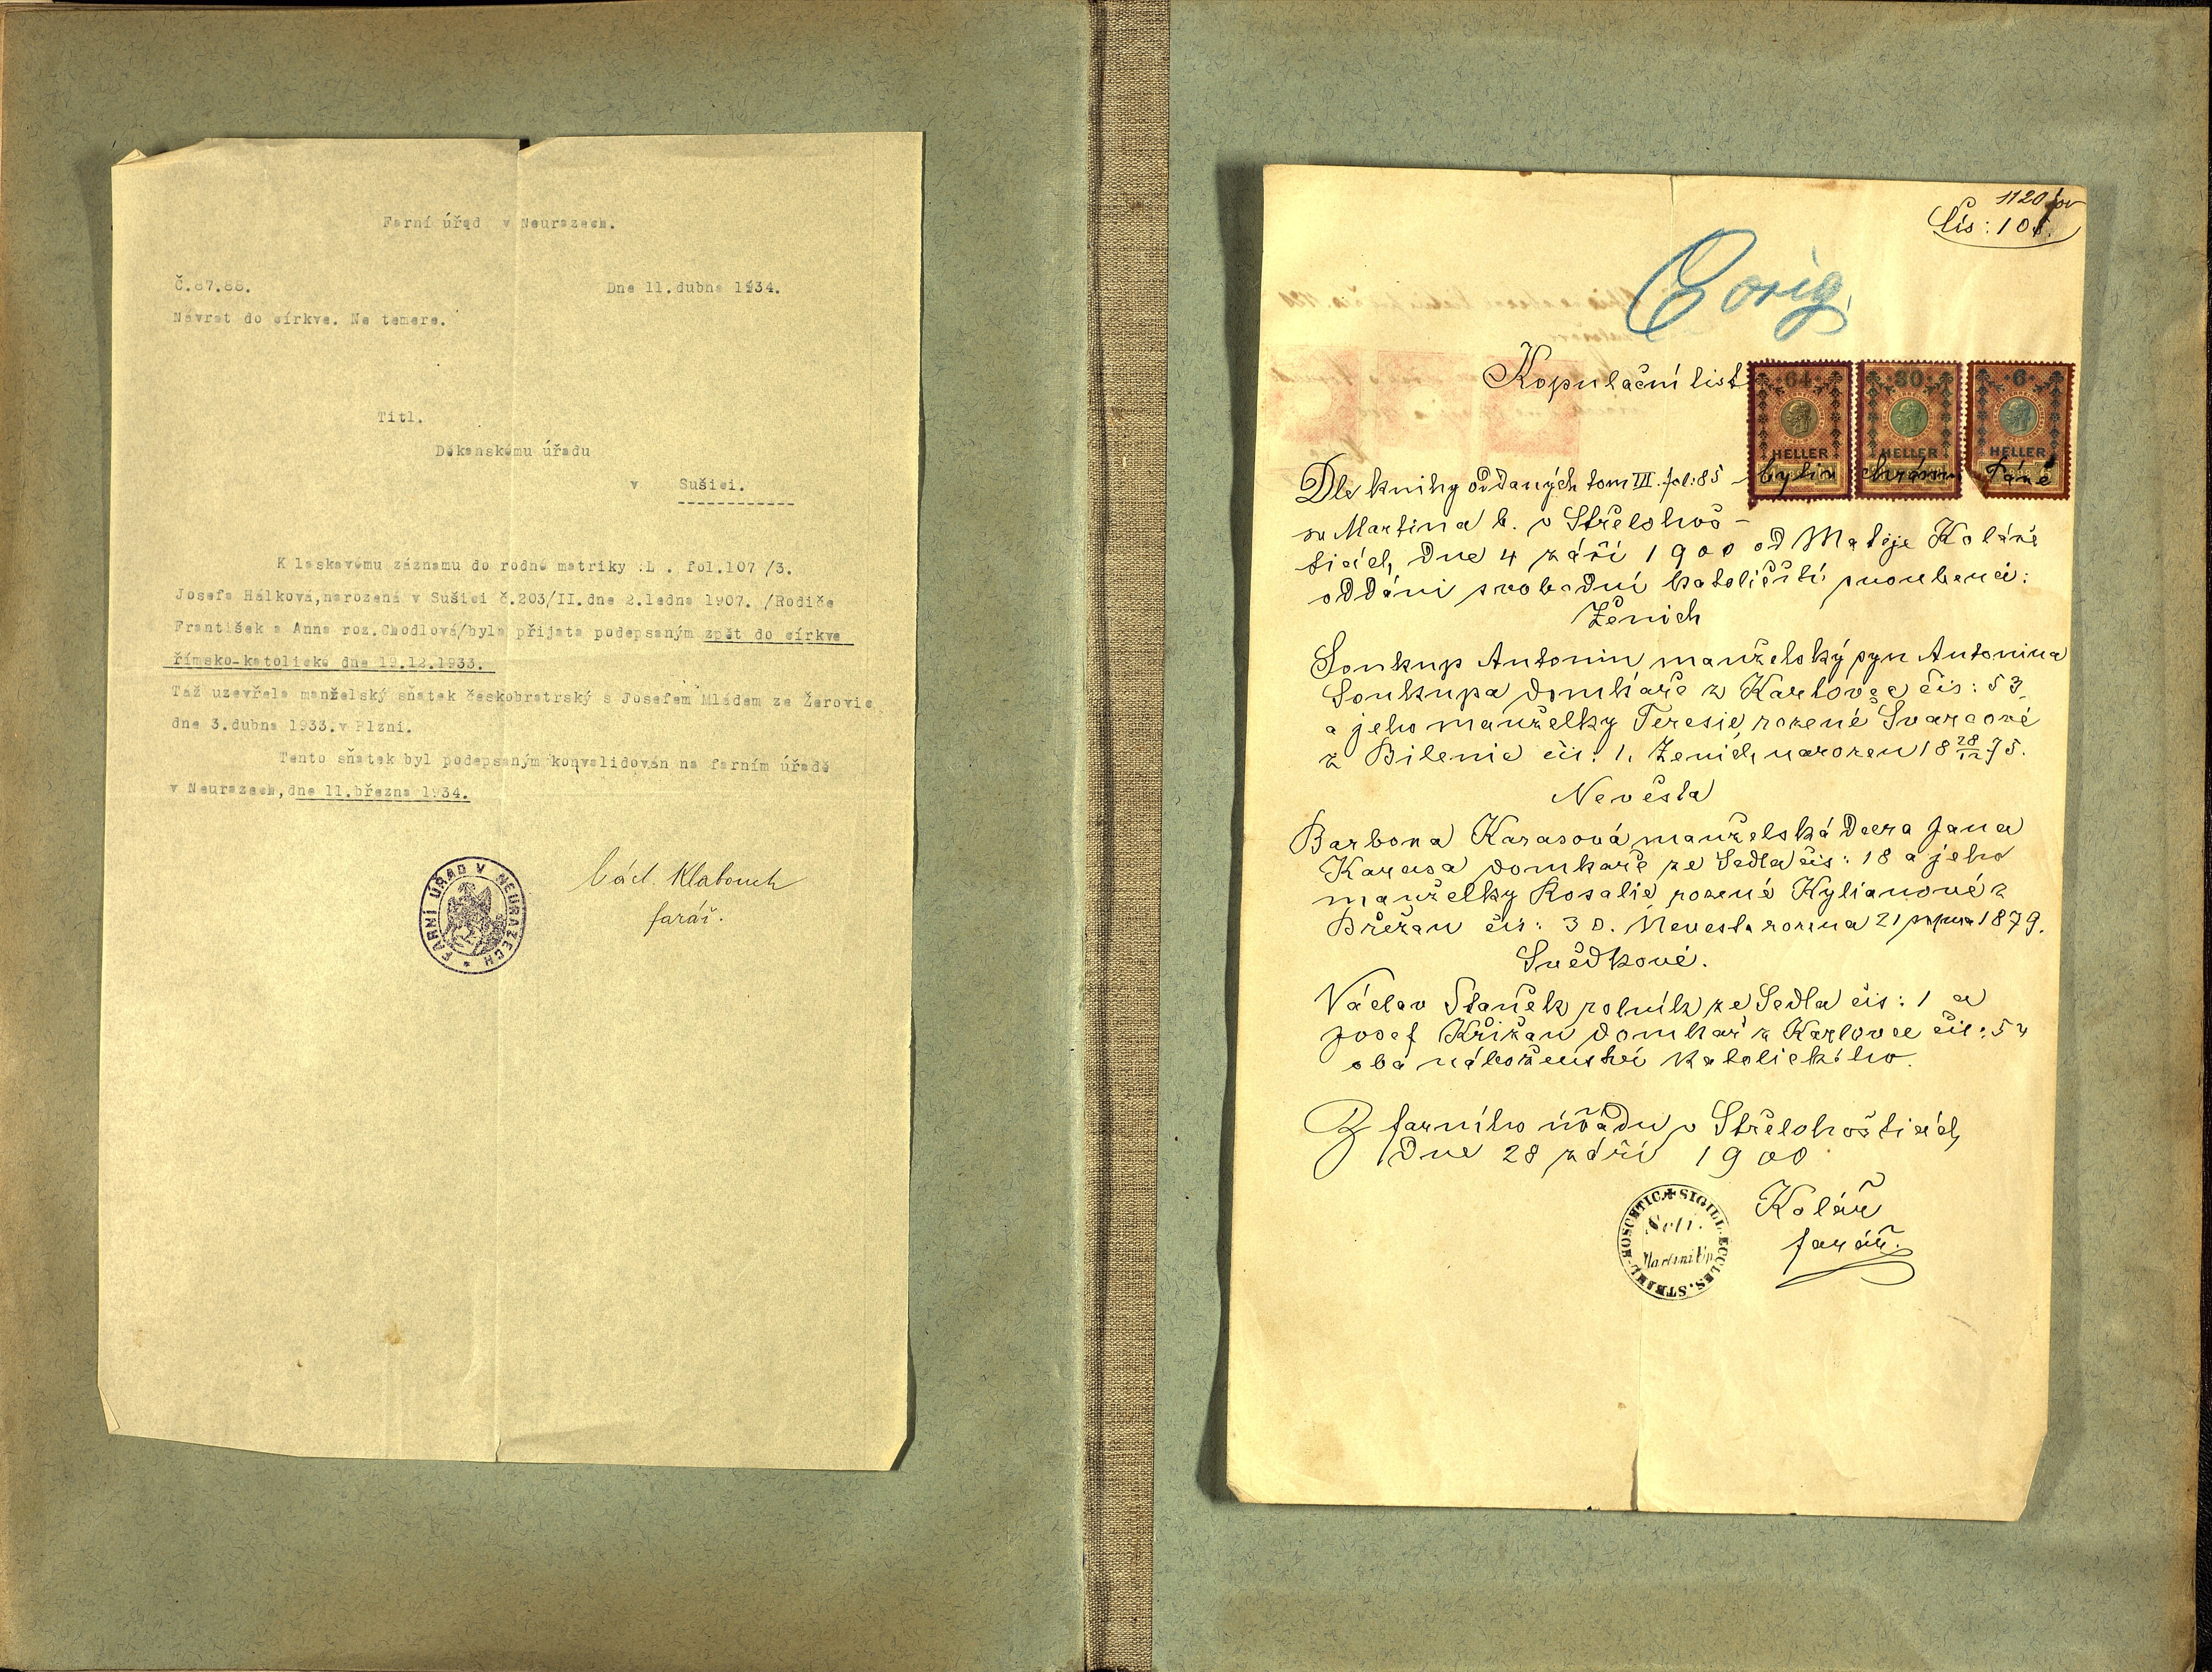 Farní úřad v Neurazech.
Č.87.88.
Dne 11.dubna 1934.
Návrat do církve. Ne temere.
Titl.
Děkanskému úřadu
v Sušici.
K laskavému záznamu do rodné matriky :L . fol.107 /3.
Josefa Hálková,narozená v Sušici č.203/II.dne 2.ledna 1907. /Rodiče
František a Anna roz.Chodlová/byla přijata podepsaným zpět do církve
římsko-katolické dne 19.12.1933.
Táž uzevřela manželský sňatek českobratrský s Josefem Mládem ze Žerovic
dne 3.dubna 1933.v Plzni.
Tento sňatek byl podepsaným konvalidován na farním úřadě
v Neurazech,dne 11.března 1934.
FARNÍ ÚŘAD V NEURAZECH
Václ. Klabouch
farář.
1120
Čís: 108.
Eorig.
Kopulační list
64 HELLER
30 HELLER
6 HELLER
Dle knihy oddaných tom III. fol: 85 chrámu Páně
sv Martina b. v Střelohoš-
ticích, dne 4 září 1900 od Matěje Koláře
oddáni svobodní katoličtí snoubenci:
Ženich
Soukup Antonin manželský syn Antonina
Soukupa domkáře z Karlovec čis: 53,
a jeho manželky Teresie, rozené Švarcové
z Bilenic čis: 1. Ženich narozen 18 28/12 75.
Nevěsta
Barbora Karasová manželská dcera Jana
Karasa domkaře ze Sedla čis: 18 a jeho
manželky Rosalie rozené Kylianové z
Břežan čis: 30. Nevesta rozena 21 srpna 1879.
Svědkové.
Václav Staněk rolník ze Sedla čis: 1 a
Josef Křižan domkař z Karlovec čis: 54
oba náboženství katolického.
Z farního úřadu v Střelohošticích,
dne 28 září 1900
SIGILL. ECCLES. STRZEL-HOSCHTIC.
Scti.
Martini Ep.
Kolář
farář.